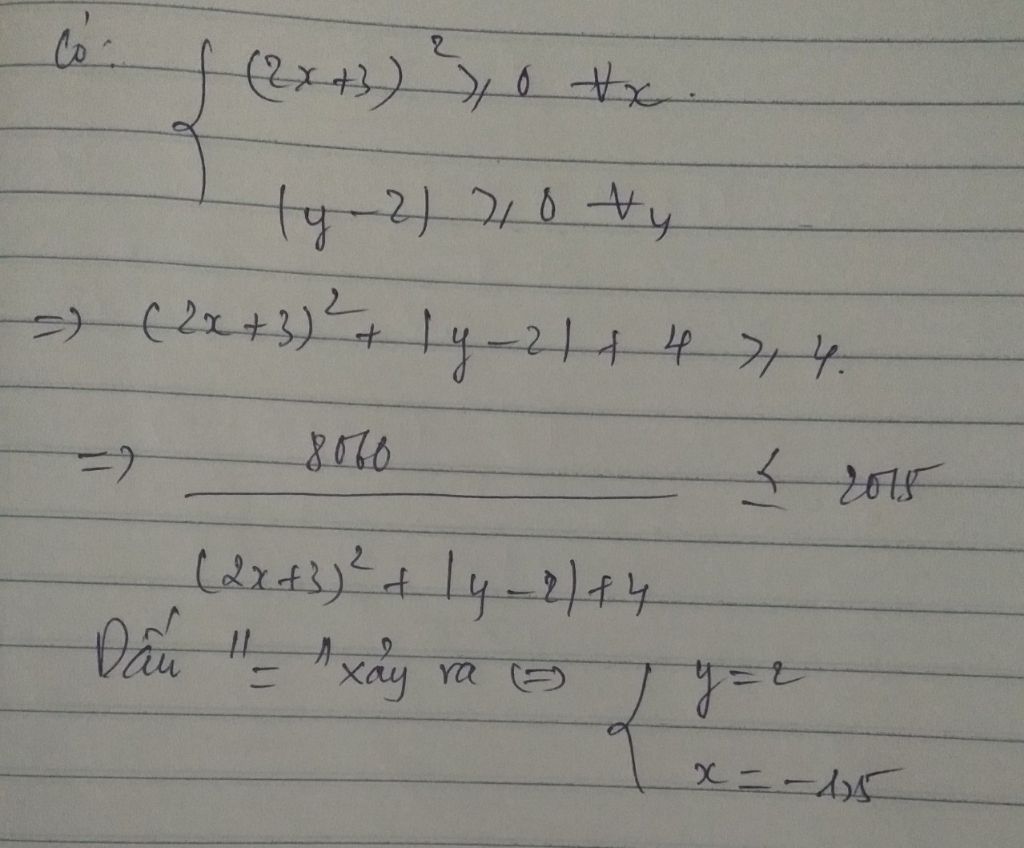 Có: { (2x+3)² ≥ 0 ∀x.
|y-2| ≥ 0 ∀y
=> (2x+3)² + |y-2| + 4 ≥ 4.
=> 8060 ≤ 2015
(2x+3)² + |y-2| + 4
Dấu "=" xảy ra <=> { y=2
x = -1,5